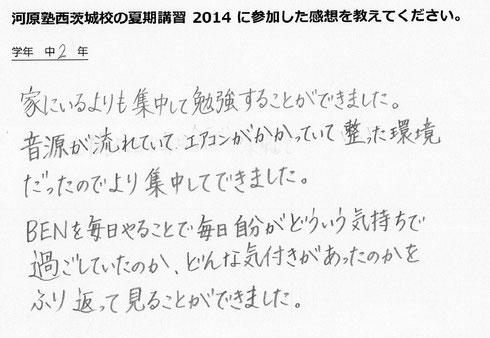 河原塾西茨城校の夏期講習 2014 に参加した感想を教えてください。
学年 中2年
家にいるよりも集中して勉強することができました。
音源が流れていて、エアコンがかかっていて整った環境
だったのでより集中してできました。
BENを毎日やることで毎日自分がどういう気持ちで
過ごしていたのか、どんな気付きがあったのかを
ふり返って見ることができました。